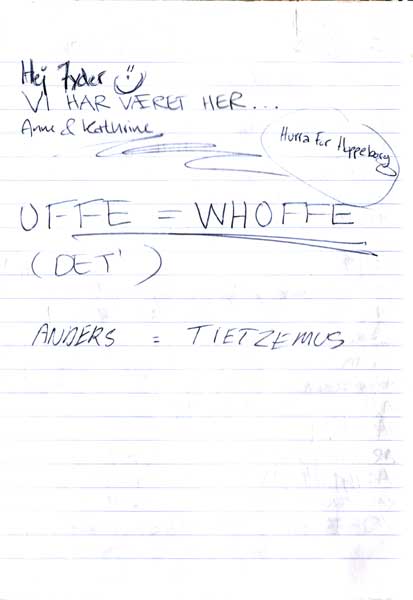 Hej Fyder
VI HAR VÆRET HER...
Anne & Kathrine
Hurra For Hyggeborg
UFFE = WHOFFE
(DET')
ANDERS = TIETZEMUS